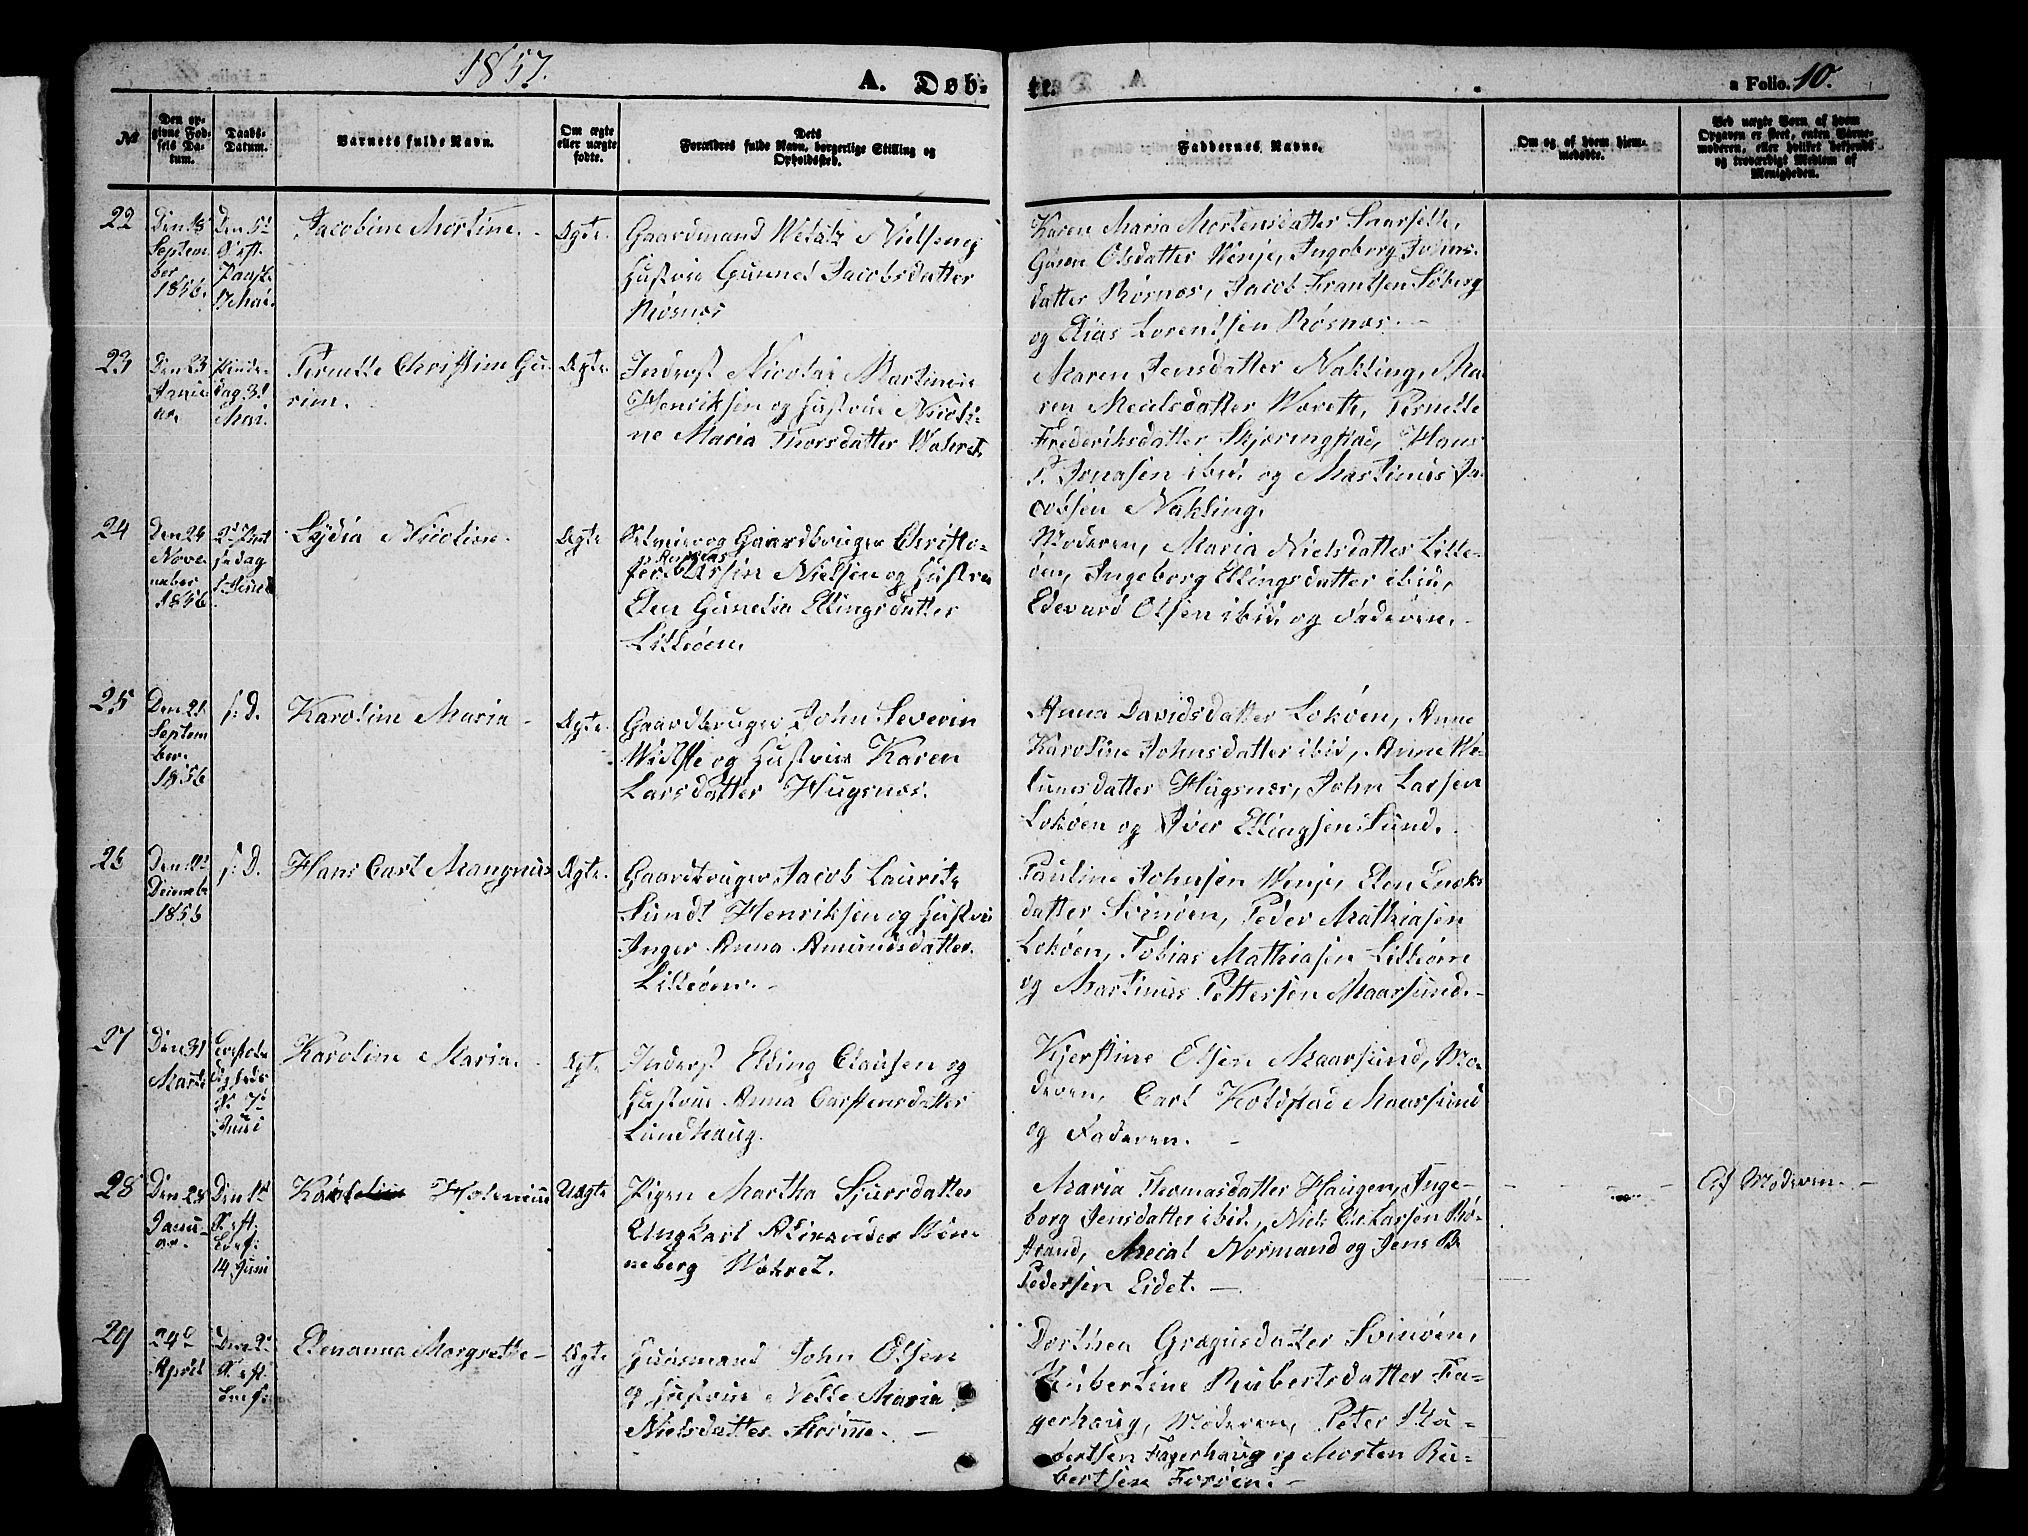 1857.
A. Døb-
te.
a Folio. 10.
№
Den op-
givne Fød-
sels Da-
tum.
Daabs-
Datum.
Barnets fulde Navn.
Om ægte
eller uægte
fødte.
Dets
Forældres fulde Navn, borgerlige Stilling og
Opholdssted.
Faddernes Navne.
Om og af hvem hjem-
medøbte.
Ved uægte Børn af hvem
Opgaven er skeet, enten Barne-
moderen, eller hvilket bekjendt
og troværdigt Medlem af
Menigheden.
22
Den 18
Septem
ber
1856.
Den 5te
S. eft.
Paask.
17 Mai.
Jacobine Mortine. -
Ægte.
Gaardmand Nielsen og
Hustrue Gunnel Jacobsdatter
Røsnæs
Karen Maria Mortensdatter
Olsdatter Wenje, Ingeborg Johns-
datter Røsnæs, Jacob Frantsen Søberg
og Elias Lorentsen Røsnæs. -
23
Den 23
Janu
ar.
Pindse-
dag 31
Mai.
Pernelle Christine Gu-
rine.
Ægte.
Inderst Nicolai Martinus
Henriksen og Hustrue Nicoli-
ne Maria Thorsdatter Wolvet.
Maren Jensdatter Nakling, Ma-
ren Wovette, Pernelle
Frederiksdatter Skjæringstad, Hans
P. Jonasen ibid. og Martinus Ja-
cobsen Nakling.
24
Den 24
Nove
mber
1856
2d Pint
sedag
1 Juni
Lydia Nicoline.
Ægte
og Gaardbruger Christo-
fer Nielsen og Hustrue
Elen Ellingsdatter
Lilleøen.
Moderen, Maria Nielsdatter Lille-
øen, Ingeborg Ellingsdatter ibid,
Edevard Olsen ibid. og Faderen. -
25
Den 21
Septem
ber.
1856
s. D.
Karoline Maria -
Ægte.
Gaardbruger John Severin
og Hustrue Karen
Larsdatter Hugsnæs.
Anna Davidsdatter Lokøen, Anne
Karoline Johnsdatter ibid, Anne
datter Hugsnæs, John Larsen
Lokøen og Iver Ellingsen Sund.
26
Den 11te
Decemb
1856
s. D.
Hans Carl Mangnus
Ægte.
Gaardbruger Jacob Laurits
Sundt Henriksen og Hustrue
Inger Anna Amundsdatter
Lilleøen. -
Pauline Johnsen Wenje, Elen
datter Svinøen, Peder Mathiasen
Lokøen, Tobias Mathiasen Lilleøen
og Martinus Pettersen Maarsund. -
27
Den 31
Marts
7de
Juni
Karoline Maria. -
Ægte
Inderst Elling Clausen og
Hustrue Anna Carstensdatter
Lundhaug.
Kjerstine Olsen Maarsund, Mo-
deren, Carl Koldstad Maarsund
og Faderen. -
28
Den 28
Janu-
ar.
Den 1st
S. eft.
14 Juni
Uægte
Pigen Martha Sjursdatter
Ungkarl Alexander
Wolvet.
Maria Thomasdatter Haugen, Inge-
borg Jensdatter ibid., Niels Larsen Rø-
strand, Normand og Jens B
Pedersen Eidet. -
Af Moderen. -
29
24d
April
Den 2d
S. eft.
Elenanna Margrethe -
Ægte
Huusmand John Olsen
og Hustrue Maria
Nielsdatter -
Dorthea Svinøen,
Hubertine Rubertsdatter Fa-
gerhaug, Moderen, Peter Ru-
bertsen Fagerhaug og Morten Ru-
bertsen Forøen. -